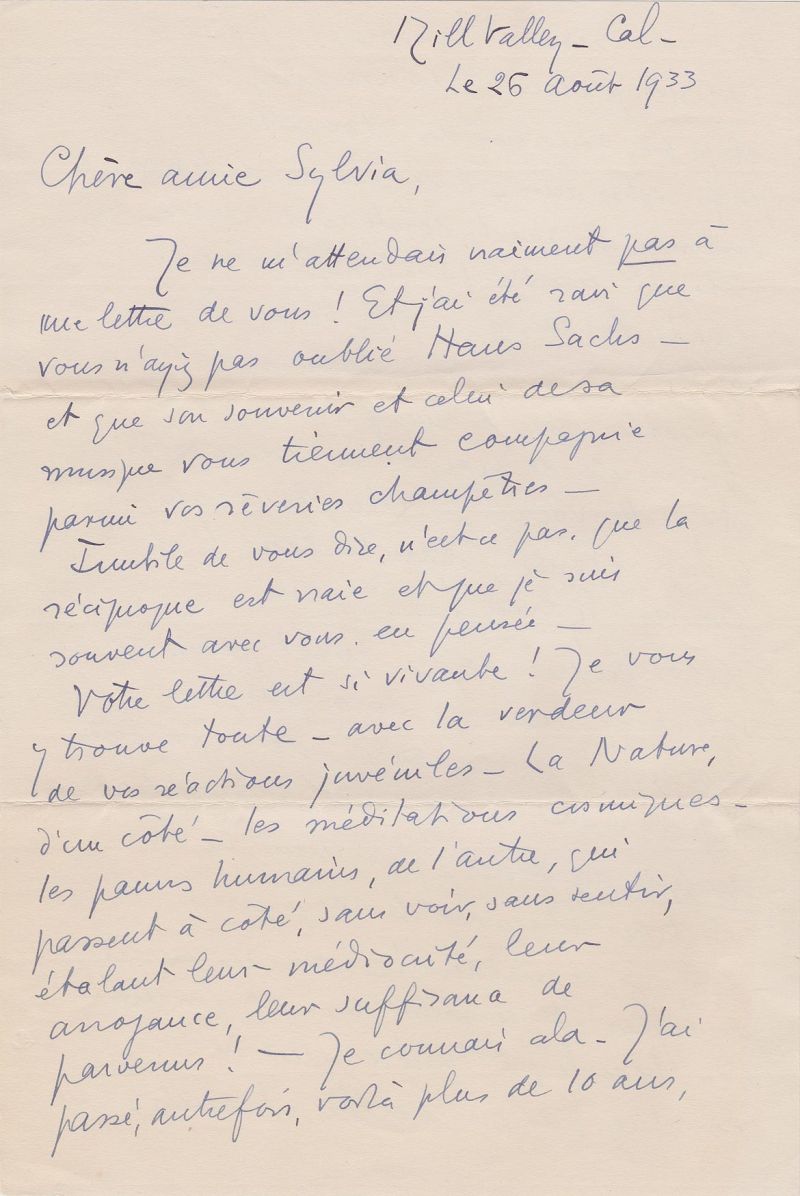 Mill Valley - Cal -
Le 26 Août 1933
Chère amie Sylvia,
Je ne m'attendais vraiment pas à
une lettre de vous ! Et j'ai été ravi que
vous n'ayiez pas oublié Hans Sachs -
et que son souvenir et celui de sa
musique vous tiennent compagnie
parmi vos rêveries champêtres -
Inutile de vous dire, n'est-ce pas, que la
réciproque est vraie et que je suis
souvent avec vous en pensée -
Votre lettre est si vivante ! Je vous
y trouve toute - avec la verdeur
de vos réactions juvéniles - La Nature,
d'un côté - les méditations cosmiques -
les pauvres humains, de l'autre, qui
passent à côté, sans voir, sans sentir,
étalant leur médiocrité, leur
arrogance, leur suffisance de
parvenus ! - Je connais cela - J'ai
passé, autrefois, voilà plus de 10 ans,